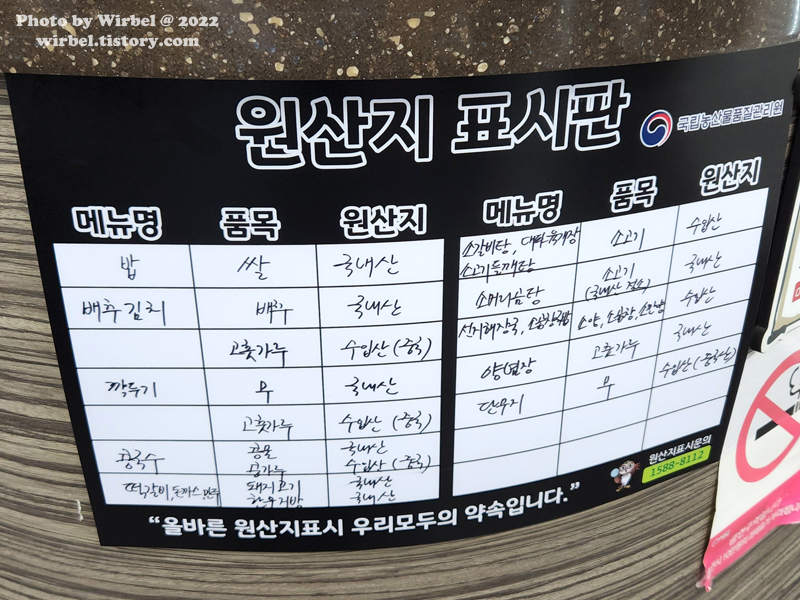 Photo by Wirbel @ 2022
wirbel.tistory.com
원산지 표시판
국립농산물품질관리원
메뉴명 품목 원산지
밥 쌀 국내산
배추김치 배추 국내산
고춧가루 수입산 (중국)
깍두기 무 국내산
고춧가루 수입산 (중국)
콩국수 콩물 국내산
콩가루 수입산 (중국)
떡갈비, 돈까스 만두 돼지고기 국내산
한우지방 국내산
메뉴명 품목 원산지
소갈비탕, 대파육개장 소고기 수입산
소고기들깨탕
소머리곰탕 소고기 국내산
(국내산 젖소)
선지해장국, 소곱창전골 소양, 소곱창, 수입산
양념장 고춧가루 국내산
단무지 무 수입산 (중국산)
원산지표시문의
1588-8112
“올바른 원산지표시 우리모두의 약속입니다.”